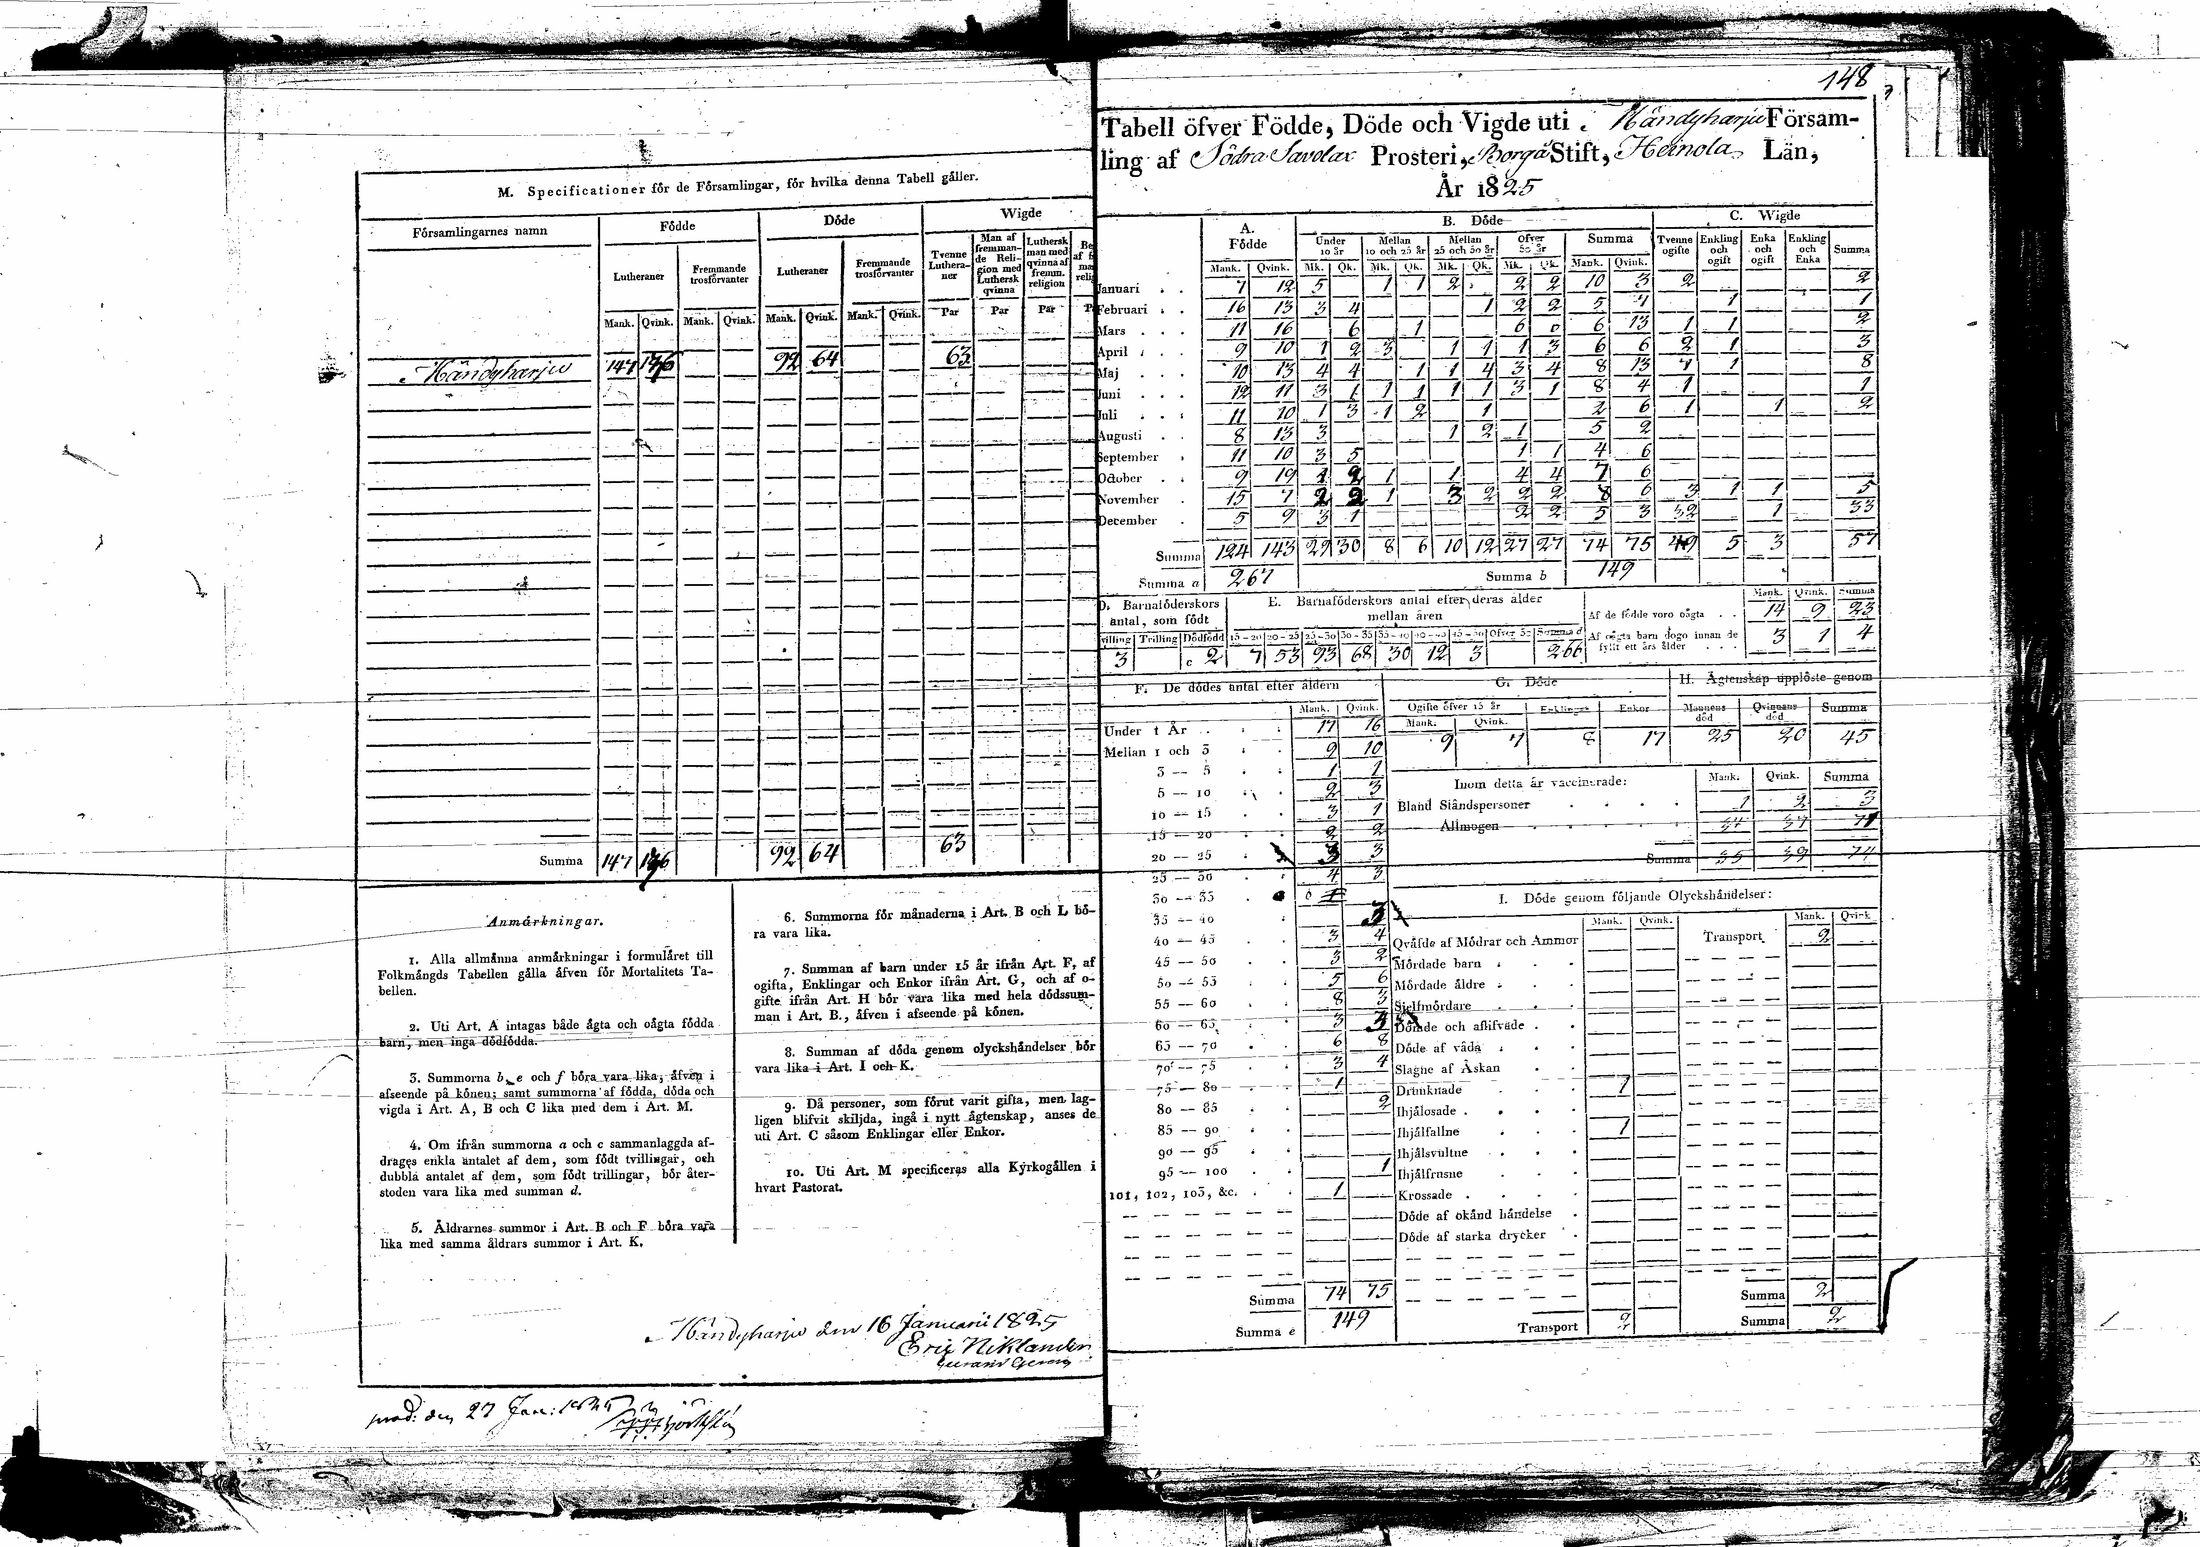 M. Specificationer för de Församlingar, för hvilka denna Tabell gäller.
Församlingarnes namn | Födde | Döde | Wigde
Lutheraner | Fremmande trosförvanter | Lutheraner | Fremmande trosförvanter | Tvenne Lutheraner | Man af fremmande Religion med Luthersk qvinna | Luthersk man med qvinna af fremm. religion
Mank. | Qvink. | Mank. | Qvink. | Mank. | Qvink. | Mank. | Qvink. | Par | Par | Par
Mändyharju 147 176 92 64 63
Summa 147 176 92 64 63
Anmärkningar.
1. Alla allmänna anmärkningar i formuläret till
Folkmängds Tabellen gälla äfven för Mortalitets Ta-
bellen.
2. Uti Art. A intagas både ägta och oägta födda
barn, men inga dödfödda.
3. Summorna b, e och f böra vara lika, äfven i
afseende på könen; samt summorna af födda, döda och
vigda i Art. A, B och C lika med dem i Art. M.
4. Om ifrån summorna a och c sammanlaggda af-
drages enkla antalet af dem, som födt tvillingar, och
dubbla antalet af dem, som födt trillingar, bör åter-
stoden vara lika med summan d.
5. Åldrarnes summor i Art. B och F böra vara
lika med samma åldrars summor i Art. K.
6. Summorna för månaderna i Art. B och L bö-
ra vara lika.
7. Summan af barn under 15 år ifrån Art. F, af
ogifta, Enklingar och Enkor ifrån Art. G, och af o-
gifte ifrån Art. H bör vara lika med hela dödssum-
man i Art. B., äfven i afseende på könen.
8. Summan af döda genom olyckshändelser bör
vara lika i Art. I och K.
9. Då personer, som förut varit gifta, men lag-
ligen blifvit skiljda, ingå i nytt ägtenskap, anses de
uti Art. C såsom Enklingar eller Enkor.
10. Uti Art. M specificeras alla Kyrkogällen i
hvart Pastorat.
Mändyharju den 16 Januarii 1825
Eric Niklander
prod: den 27 Jan:
148
Tabell öfver Födde, Döde och Vigde uti Mändyharju Församling
ling af Södra Savolax Prosteri, Borgå Stift, Heinola Län,
År 1825
A. Födde | B. Döde | C. Wigde
Under 10 år | Mellan 10 och 25 år | Mellan 25 och 50 år | Öfver 50 år | Summa | Tvenne ogifte | Enkling och ogift | Enka och ogift | Enkling och Enka | Summa
Mank. | Qvink. | Mk. | Qk. | Mk. | Qk. | Mk. | Qk. | Mk. | Qk. | Mank. | Qvink.
Januari 7 12 5 1 1 2 2 2 10 3 2 2
Februari 16 13 3 4 1 2 2 5 7 1 1
Mars 11 16 6 1 6 6 6 13 1 1 2
April 9 10 1 2 3 1 1 1 3 6 6 2 1 3
Maj 10 13 4 4 1 1 4 3 4 8 13 7 1 8
Juni 12 11 3 1 1 1 1 1 3 1 8 4 1 1
Juli 11 10 1 3 1 2 1 2 6 1 1 2
Augusti 8 13 3 1 2 1 5 2
September 11 10 3 5 1 1 4 6
October 9 19 1 2 1 1 4 4 7 6
November 15 7 2 2 1 3 2 2 2 8 6 3 1 1 5
December 5 9 3 1 2 2 5 3 32 1 33
Summa 124 143 29 30 8 6 10 12 27 27 74 75 49 5 3 57
Summa a 267 Summa b 149
D. Barnaföderskors antal, som födt
E. Barnaföderskors antal efter deras ålder mellan åren
Mank. Qvink. Summa
Af de födde voro oägta 14 9 23
Af oägta barn dogo innan de fyllt ett års ålder 3 1 4
Tvilling | Trilling | Dödfödd | 15-20 | 20-25 | 25-30 | 30-35 | 35-40 | 40-45 | 45-50 | Öfver 50 | Summa d
3 c 2 7 53 93 68 30 12 3 266
F. De dödes antal efter åldern
Mank. Qvink.
Under 1 År 17 16
Mellan 1 och 3 9 10
3 — 5 1 1
5 — 10 2 3
10 — 15 3 1
15 — 20 2 2
20 — 25 3 3
25 — 30 4 3
30 — 35
35 — 40 3
40 — 45 3 4
45 — 50 3 2
50 — 55 5 6
55 — 60 8 3
60 — 65 3
65 — 70 6 8
70 — 75 3 4
75 — 80 1
80 — 85 2
85 — 90
90 — 95
95 — 100 1
101, 102, 103, &c. 1
Summa 74 75
Summa e 149
G. Döde
Ogifte öfver 15 år | Enklingar | Enkor
Mank. Qvink.
9 7 8 17
H. Ägtenskap upplöste genom
Mannens död | Qvinnans död | Summa
25 20 45
Inom detta år vaccinerade: Mank. Qvink. Summa
Bland Ståndspersoner 1 2 3
Allmogen 34 37 71
Summa 35 39 74
I. Döde genom följande Olyckshändelser:
Mank. Qvink. Mank. Qvink
Qväfde af Mödrar och Ammor Transport 2
Mördade barn
Mördade äldre
Sjelfmördare
Dömde och aflifvade
Döde af våda
Slagne af Åskan
Drunknade 1
Ihjälosade
Ihjälfallne 1
Ihjälsvultne
Ihjälfrusne
Krossade
Döde af okänd händelse
Döde af starka drycker
Summa 2
Transport 2 Summa 2